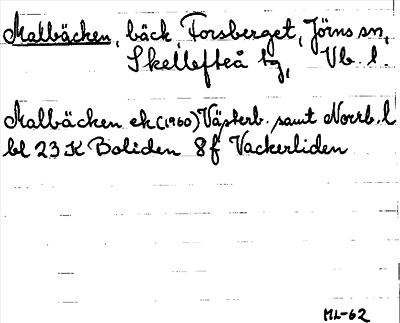 Malbäcken, bäck, Forsberget, Jörns sn,
Skellefteå tg, Vb. l.
Malbäcken ek (1960) Västerb. samt Norrb. l
bl 23 K Boliden 8f Vackerliden
ML-62